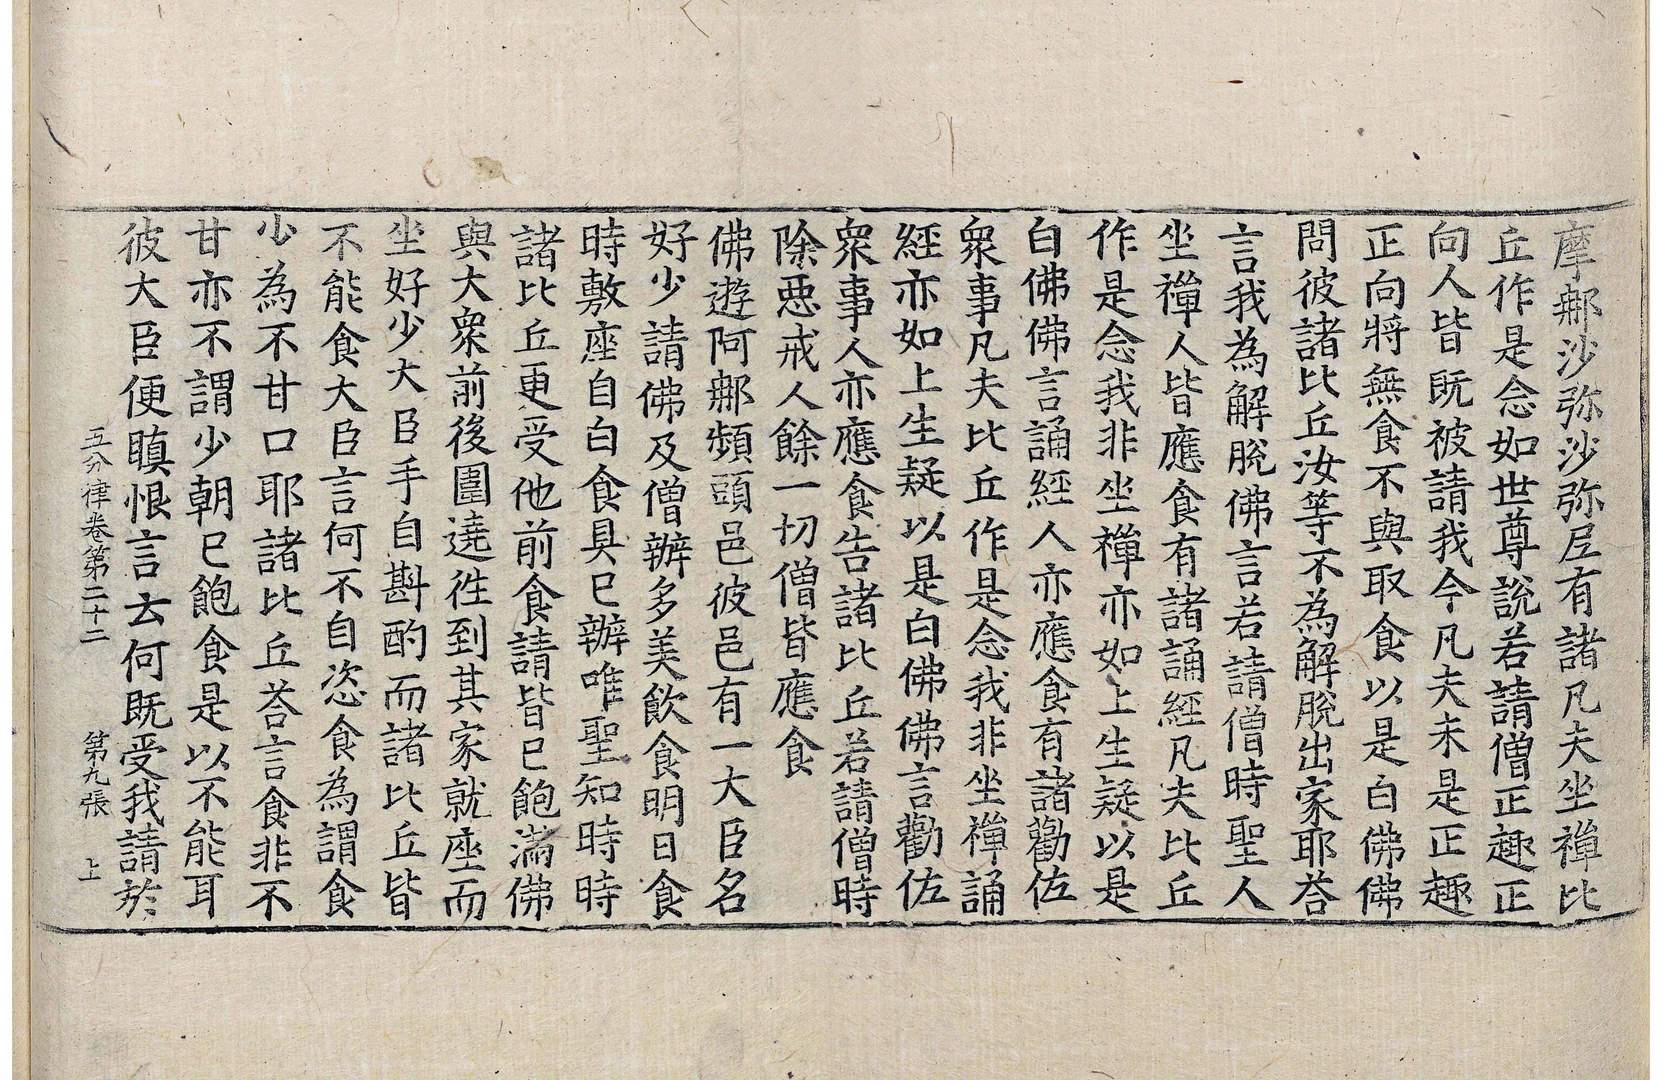 摩䣯沙弥沙弥尼有諸凡夫坐禪比
丘作是念如世尊說若請僧正趣正
向人皆既被請我今凡夫未是正趣
正向將無食不與取食以是白佛佛
問彼諸比丘汝等不為解脫出家耶荅
言我為解脫佛言若請僧時聖人
坐禪人皆應食有諸誦經凡夫比丘
作是念我非坐禪亦如上生疑以是
白佛佛言誦經人亦應食有諸勸佐
衆事凡夫比丘作是念我非坐禪誦
經亦如上生疑以是白佛佛言勸佐
衆事人亦應食告諸比丘若請僧時
除惡戒人餘一切僧皆應食
佛遊阿䣯頻頭邑彼邑有一大臣名
好少請佛及僧辦多美飲食明日食
時敷座自白食具已辦唯聖知時時
諸比丘更受他前食請皆已飽滿佛
與大衆前後圍遶往到其家就座而
坐好少大臣手自斟酌而諸比丘皆
不能食大臣言何不自恣食為謂食
少為不甘口耶諸比丘荅言食非不
甘亦不謂少朝已飽食是以不能耳
彼大臣便瞋恨言云何既受我請於
五分律卷第二十二 第九張 上